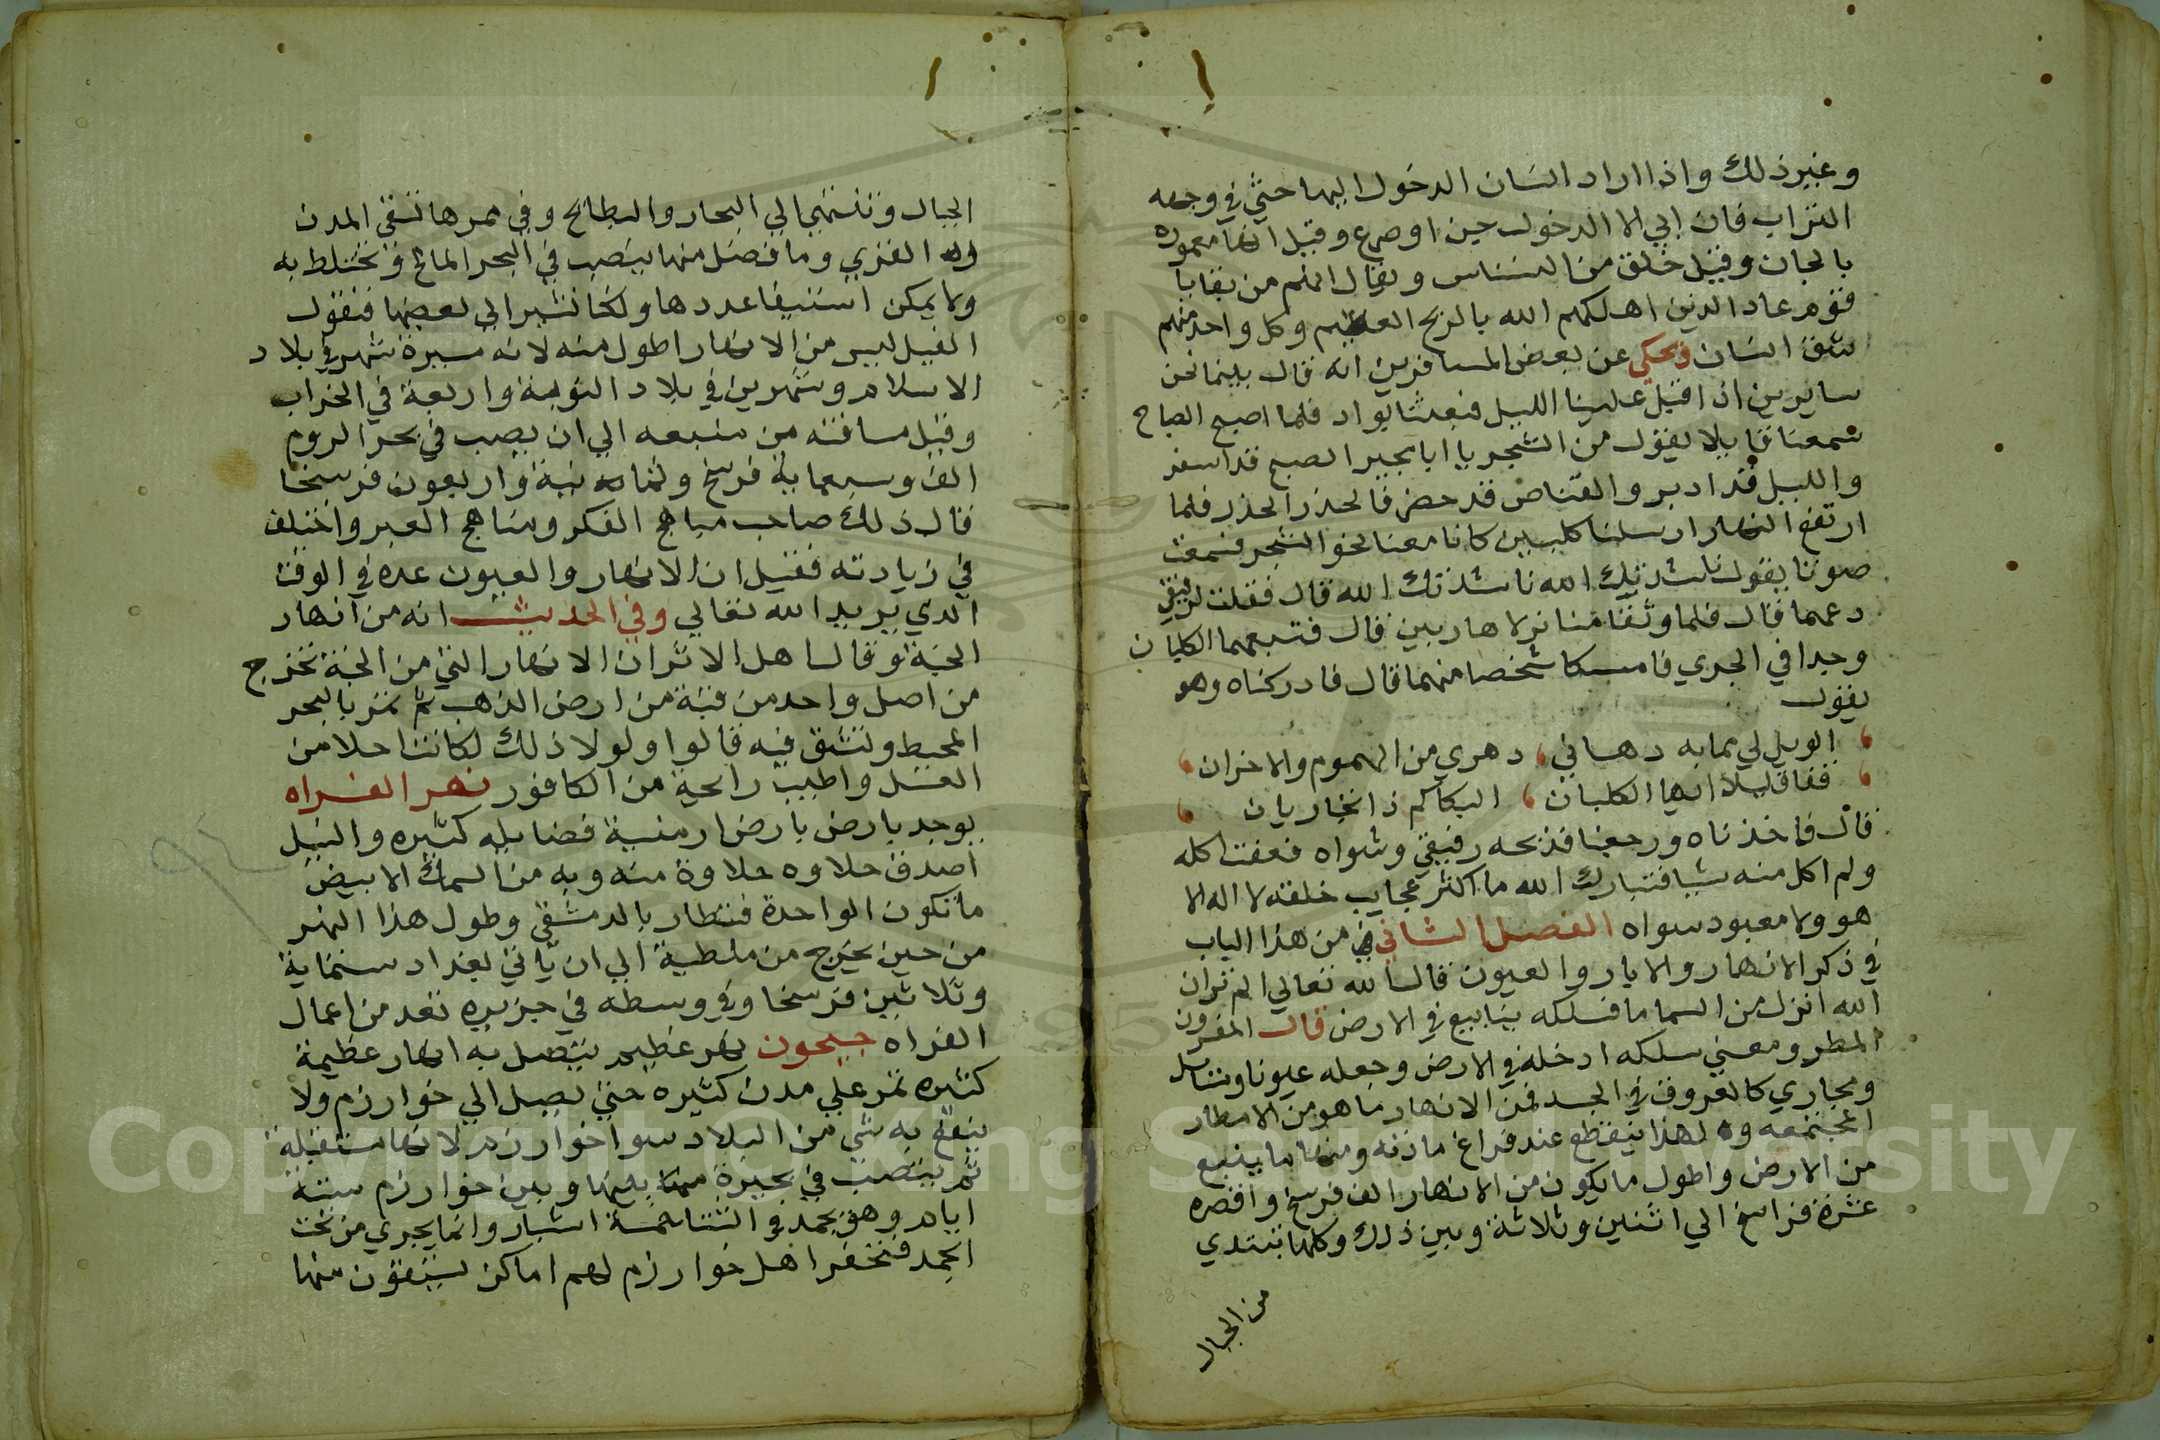 وغير ذلك واذا اراد انسان الدخول اليها حثي في وجهه
التراب فان ابي الا الدخول حين او صرع وقيل انها معموره
بالجان وقيل خلق من النسناس ويقال انهم من بقايا
قوم عاد الذين اهلكهم الله بالريح العقيم وكل واحد منهم
شق انسان وحكي عن بعض المسافرين انه قال بينما نحن
سايرين اذ اقبل علينا الليل فبعثنا بواد فلما اصبح الصباح
سمعنا قايلا يقول من الشجر يا ابا بجير الصبح قد اسفر
والليل قد ادبر والقناص قد حضر فالحذر الحذر فلما
ارتفع النهار ارسلنا كلبين كانا معنا نحو الشجر فسمعت
صوتا يقول ناشدتك الله ناشدتك الله قال فقلت لرفيقي
دعهما قال فلما وثقا منا نزلا هاربين قال فتبعهما الكلبان
وجدا في الجري فامسكا شخصا منهما قال فادركناه وهو
يقول
الويل لي مما به دهاني دهري من الهموم والاحزان
قفا قليلا ايها الكلبان اليكاكم ذا تخاريان
قال فاخذناه ورجعنا فذبحه رفيقي وشواه فعفت اكله
ولم اكل منه شيا فتبارك الله ما اكثر عجايب خلقه لا اله الا
هو ولا معبود سواه الفصل الثاني من هذا الباب
في ذكر الانهار والابار والعيون قال الله تعالي الم تر ان
الله انزل من السما ما فسلكه ينابيع في الارض قال المفسرون
المطر ومعني سلكه ادخله في الارض وجعله عيونا ومسايل
ومجاري كالعروق في الجسد فمن الانهار ما هو من الامطار
المجتمعه ولهذا ينقطع عند فراغ مادته ومنها ما ينبع
من الارض واطول ما يكون من الانهار الف فرسخ واقصره
عشرة فراسخ الي اثنين وثلاثة وبين ذلك وكلها تبتدي
من الجبال
الجبال وتنتهي الي البحار والبطايح وفي ممرها تسقي المدن
والقري وما فضل منها ينصب في البحر المالح ويختلط به
ولا يمكن استيفا عددها ولكنا نشير الي بعضها فنقول
النيل ليس من الانهار اطول منه لانه مسيرة شهر في بلاد
الاسلام وشهرين في بلاد النوبة واربعة في الخراب
وقيل مسافته من منبعه الي ان يصب في بحر الروم
الف وسبعماية فرسخ وثمانية واربعون فرسخا
قال ذلك صاحب مباهج الفكر ومناهج العبر واختلف
في زيادته فقيل ان الانهار والعيون عده في الوقت
الذي يريد الله تعالي وفي الحديث انه من انهار
الجنة وقال اهل الاثر ان الانهار التي من الجنة تخرج
من اصل واحد من قبة من ارض الذهب ثم تمر بالبحر
المحيط وتشق فيه قالوا ولولا ذلك لكانت احلا من
العسل واطيب رائحة من الكافور نهر الفراه
يوجد بارض بارض ارمنية فضايله كثيره والنيل
اصدق حلاوه حلاوة منه وبه من السمك الابيض
ما تكون الواحدة قنطار بالدمشقي وطول هذا النهر
من حين يخرج من ملطية الي ان ياتي بغداد ستماية
وثلاثين فرسخا وفي وسطه في جزيره تعد من اعمال
الفراه جيحون نهر عظيم يتصل به انهار عظيمة
كثيره تمر علي مدن كثيره حتي يصل الي خوارزم ولا
ينفع به شي من البلاد سوا خوارزم لانها مستقيلة
ثم ينصب في بحيرة بينها وبين خوارزم ستة
ايام وهو يجمد في الشتا خمسة اشبار وانما يجري من تحت
الجمد فتحفر اهل خوارزم لهم اماكن يستقون منها